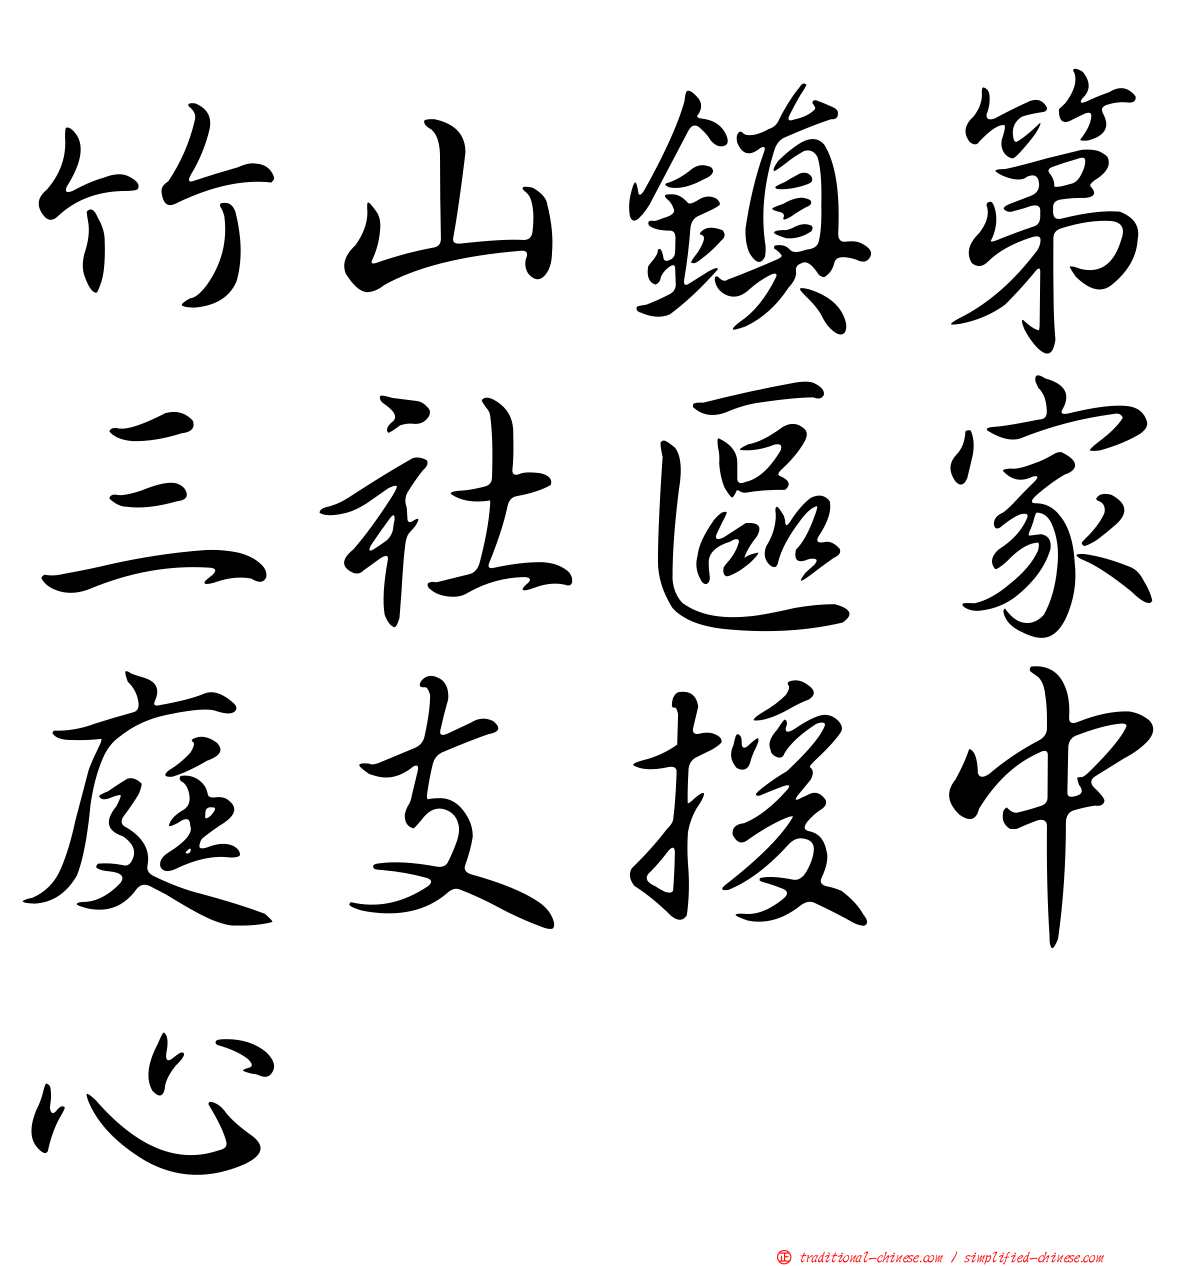 竹山鎮第
三社區家
庭支援中
心
正 traditional-chinese.com / simplified-chinese.com